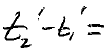 t₂' - t₁' =